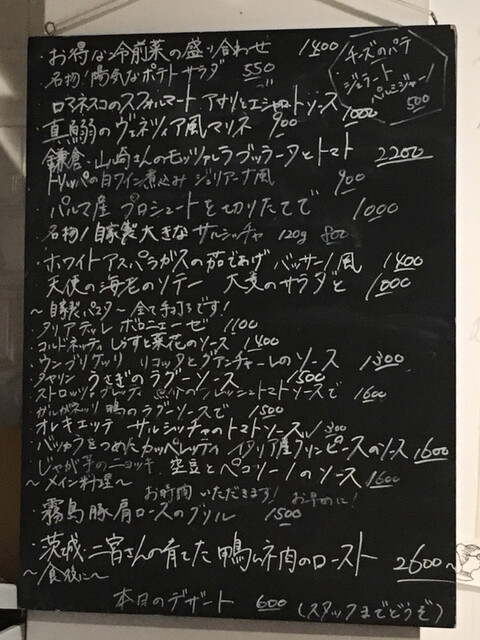 ・お得な冷前菜の盛り合わせ 1400
名物!陽気なポテトサラダ 550
チーズのパテ
ジェラート
パルミジャーノ
500
ロマネスコのスフォルマート アサリとエシャロットソース 1000
・真鰯のヴェネツィア風マリネ 900
鎌倉・山崎さんのモッツァレラブッラータとトマト 2200
トリッパの白ワイン煮込み ジェリアーナ風 900
・パルマ産 プロシュートを切りたてで 1000
名物!自家製大きなサルシッチャ 120g 800
・ホワイトアスパラガスの茹であげ バッサーノ風 1400
天使の海老のソテー 大麦のサラダと 1000
〜自家製パスタ〜 全て手打ちです!
タリアテッレ ボロニェーゼ 1100
コルドネッティ しらすと菜花のソース 1400
・ウンブリケッリ リコッタとグアンチャーレのソース 1300
タヤリン うさぎのラグーソース 1500
ストロッツァプレッティ フレッシュトマトソースで 1600
ガルガネッリ 鴨のラグーソースで 1500
オレキエッテ サルシッチャのトマトソース 1300
・バッカラをつめたカッペレッティ イタリア産グリンピースのソース 1600
じゃが芋のニョッキ 空豆とペコリーノのソース 1600
〜メイン料理〜 お時間いただきます! お早めに!
・霧島豚肩ロースのグリル 1500
・茨城・二宮さんの育てた鴨ムネ肉のロースト 2600〜
〜食後に〜
本日のデザート 600 (スタッフまでどうぞ)